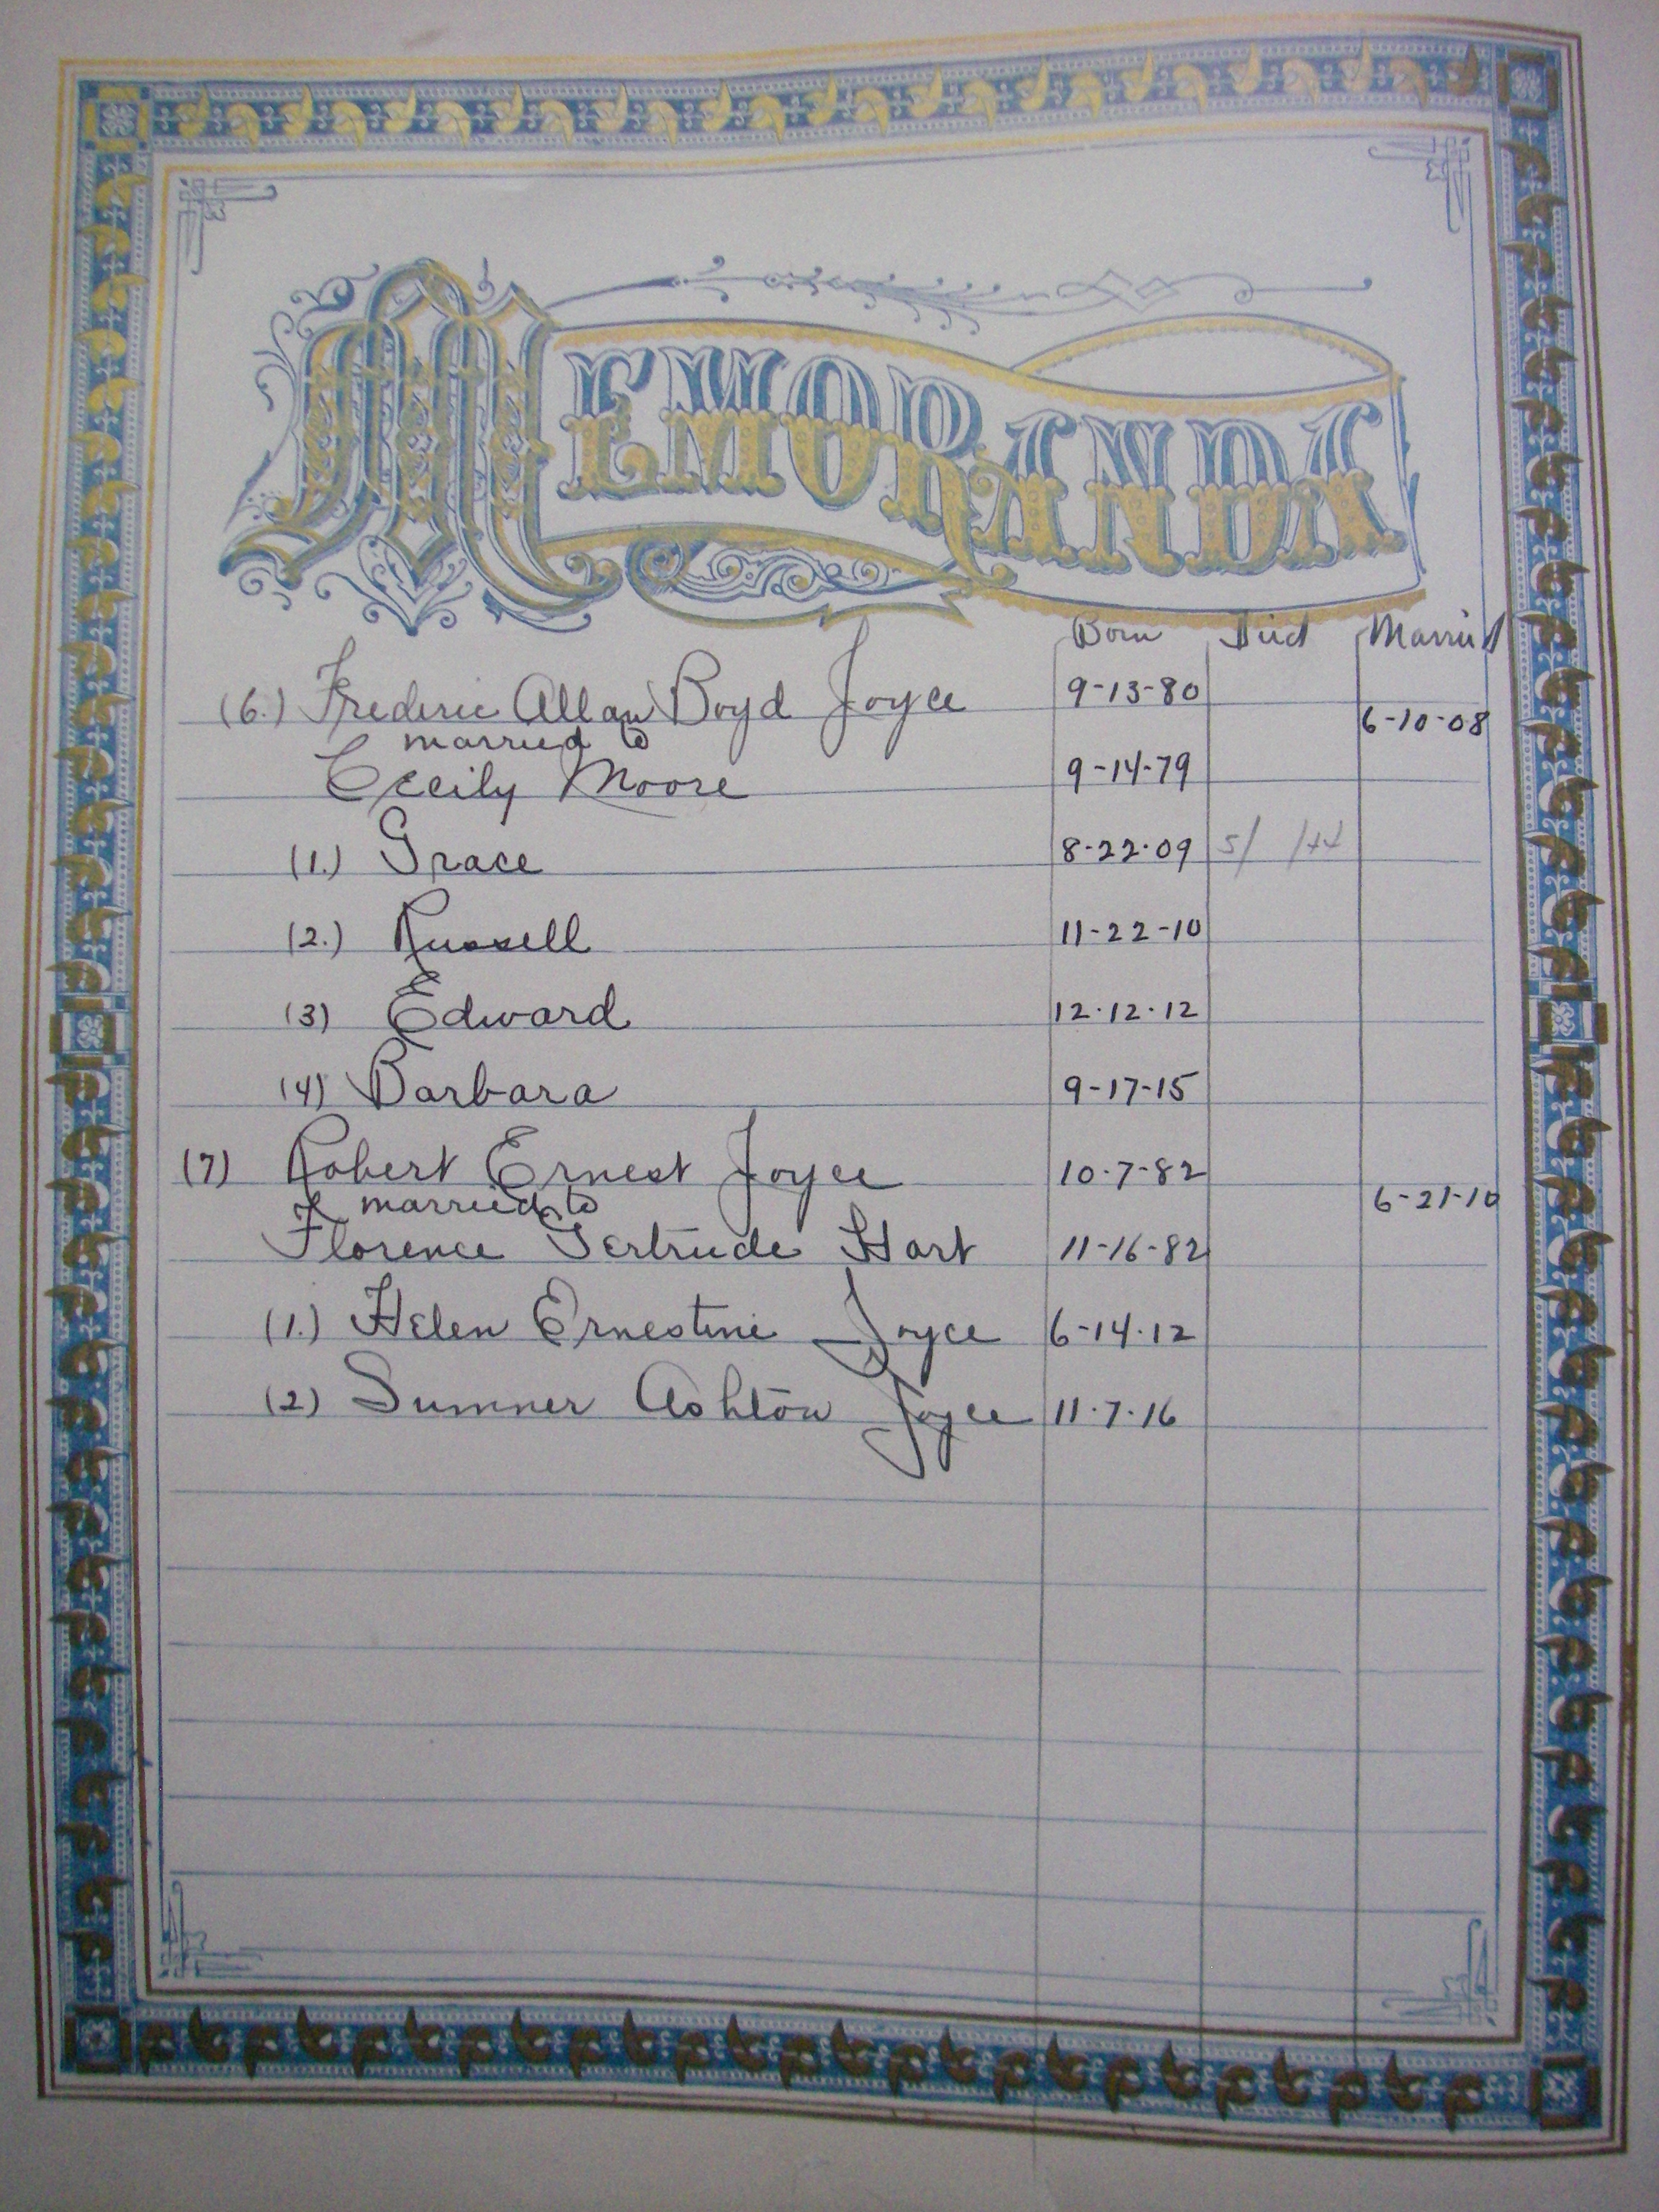 MEMORANDA
Born Died Married
(6.) Frederic Allan Boyd Joyce 9-13-80
married to 6-10-08
Cecily Moore 9-14-79
(1.) Grace 8-22-09 5/ /44
(2.) Russell 11-22-10
(3) Edward 12-12-12
(4) Barbara 9-17-15
(7) Robert Ernest Joyce 10-7-82
married to 6-21-10
Florence Gertrude Hart 11-16-82
(1.) Helen Ernestine Joyce 6-14-12
(2) Sumner Ashton Joyce 11-7-16